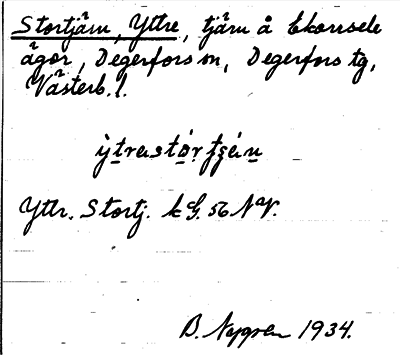 Stortjärn, Yttre, tjärn å Ekorrsele
ägor, Degerfors sn, Degerfors tg,
Västerb. l.
Yttr. Stortj. k G. 56 NV.
B. Nygren 1934.